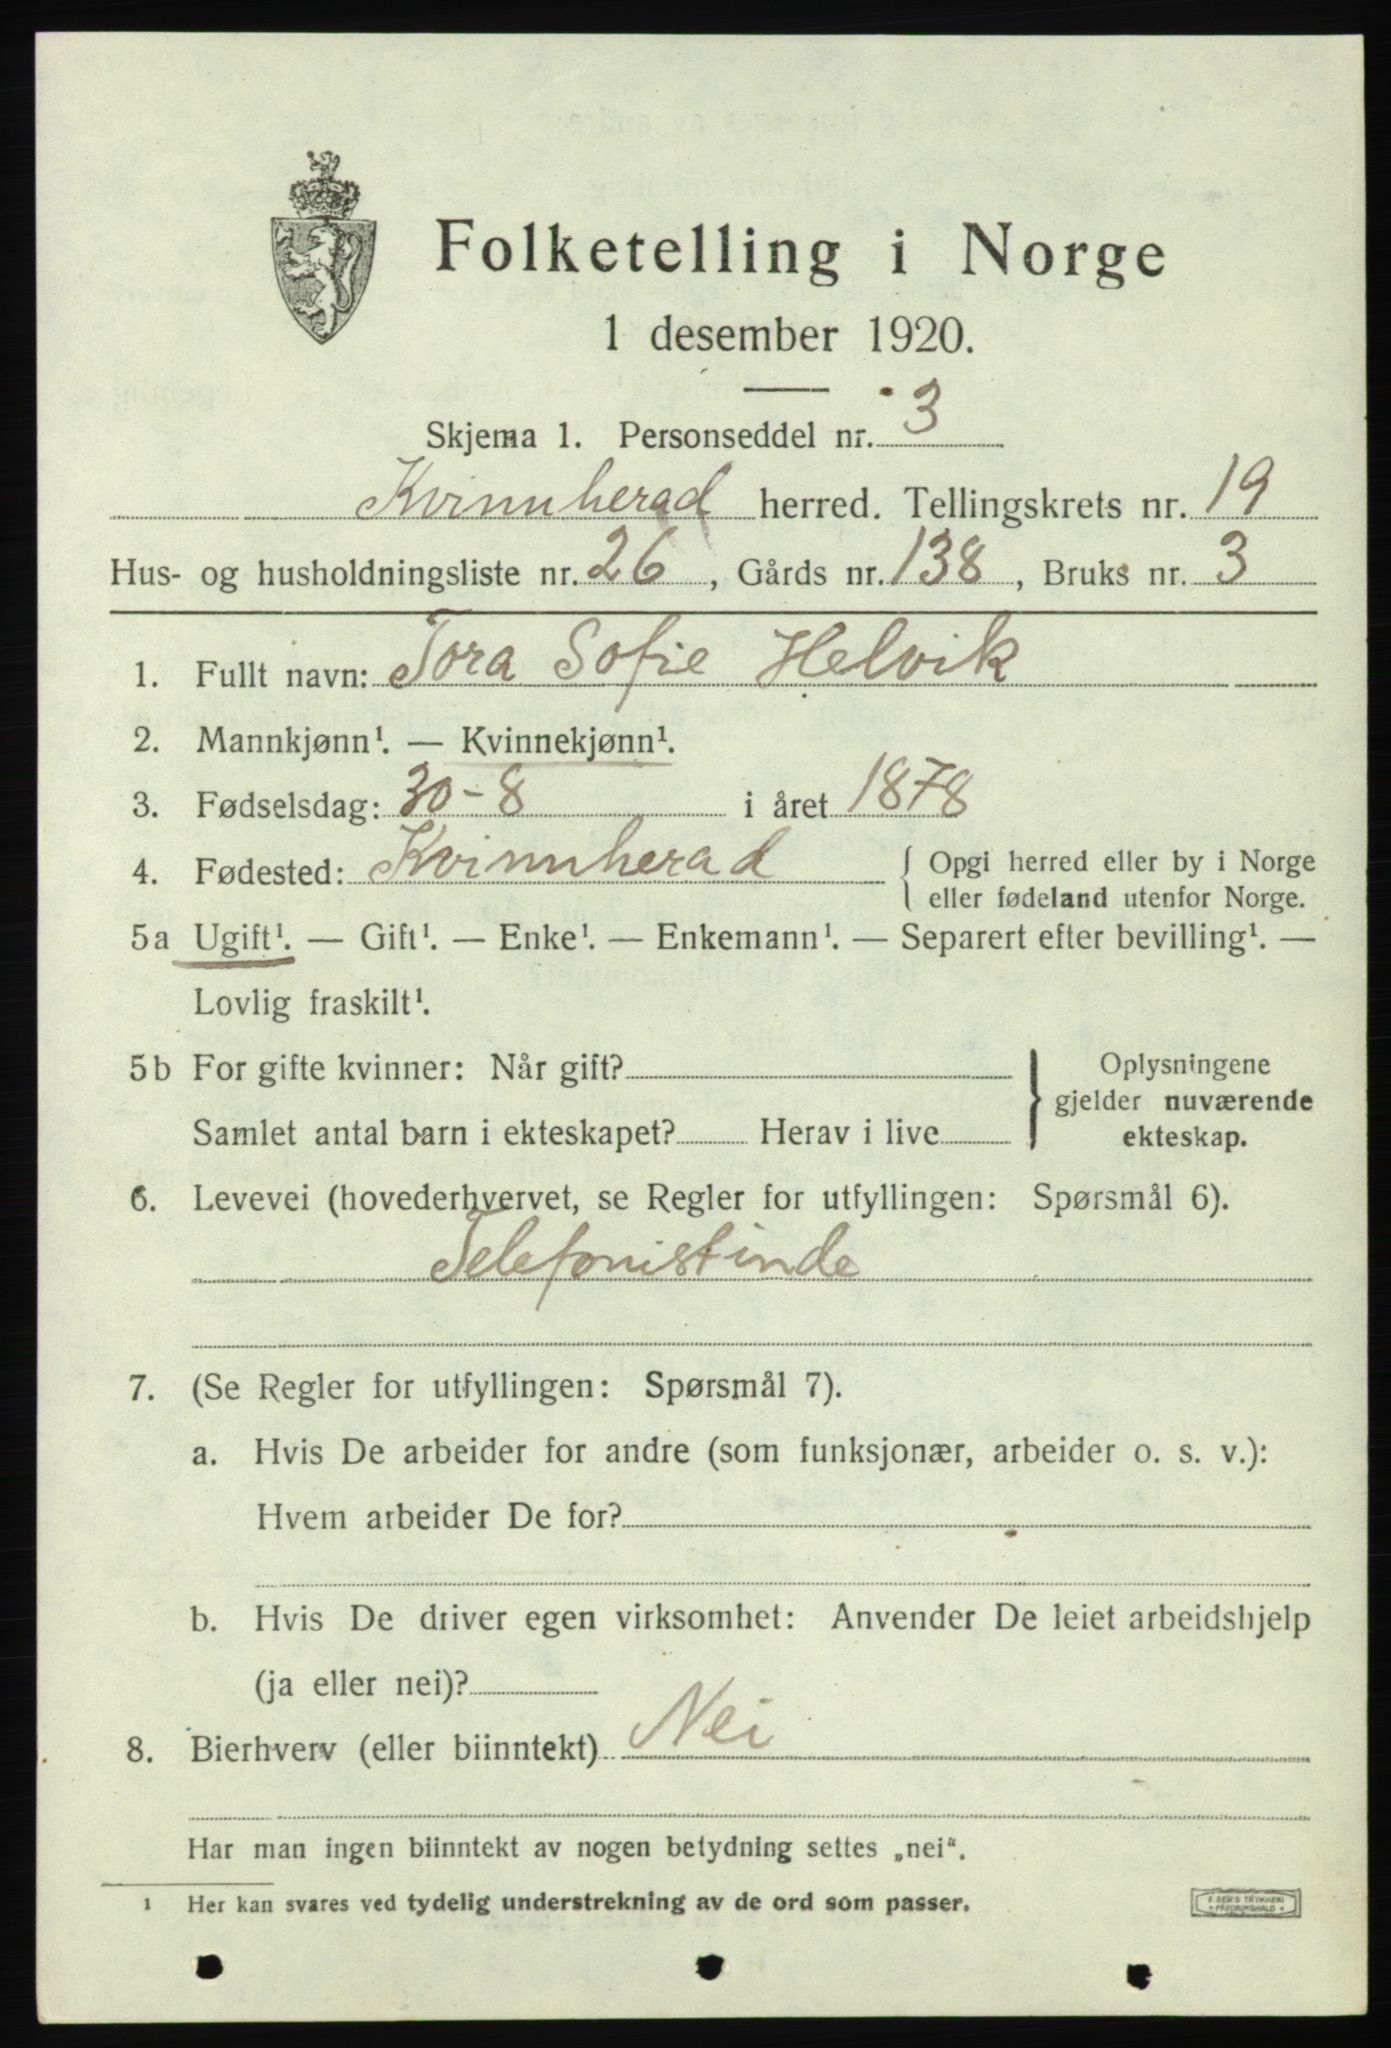 Folketelling i Norge
1 desember 1920.
Skjema 1. Personseddel nr. 3
Kvinnherad herred. Tellingskrets nr. 19
Hus- og husholdningsliste nr. 26, Gårds nr. 138, Bruks nr. 3
1. Fullt navn: Tora Sofie Helvik
2. Mannkjønn¹. — Kvinnekjønn¹.
3. Fødselsdag: 30-8 i året 1878
4. Fødested: Kvinnherad { Opgi herred eller by i Norge
eller fødeland utenfor Norge.
5a Ugift¹. — Gift¹. — Enke¹. — Enkemann¹. — Separert efter bevilling¹. —
Lovlig fraskilt¹.
5b For gifte kvinner: Når gift?
Samlet antal barn i ekteskapet? Herav i live
} Oplysningene
gjelder nuværende
ekteskap.
6. Levevei (hovederhvervet, se Regler for utfyllingen: Spørsmål 6).
Telefonistinde
7. (Se Regler for utfyllingen: Spørsmål 7).
a. Hvis De arbeider for andre (som funksjonær, arbeider o. s. v.):
Hvem arbeider De for?
b. Hvis De driver egen virksomhet: Anvender De leiet arbeidshjelp
(ja eller nei)?
8. Bierhverv (eller biinntekt) Nei
Har man ingen biinntekt av nogen betydning settes „nei“.
1 Her kan svares ved tydelig understrekning av de ord som passer.
FREDRIKSHALD